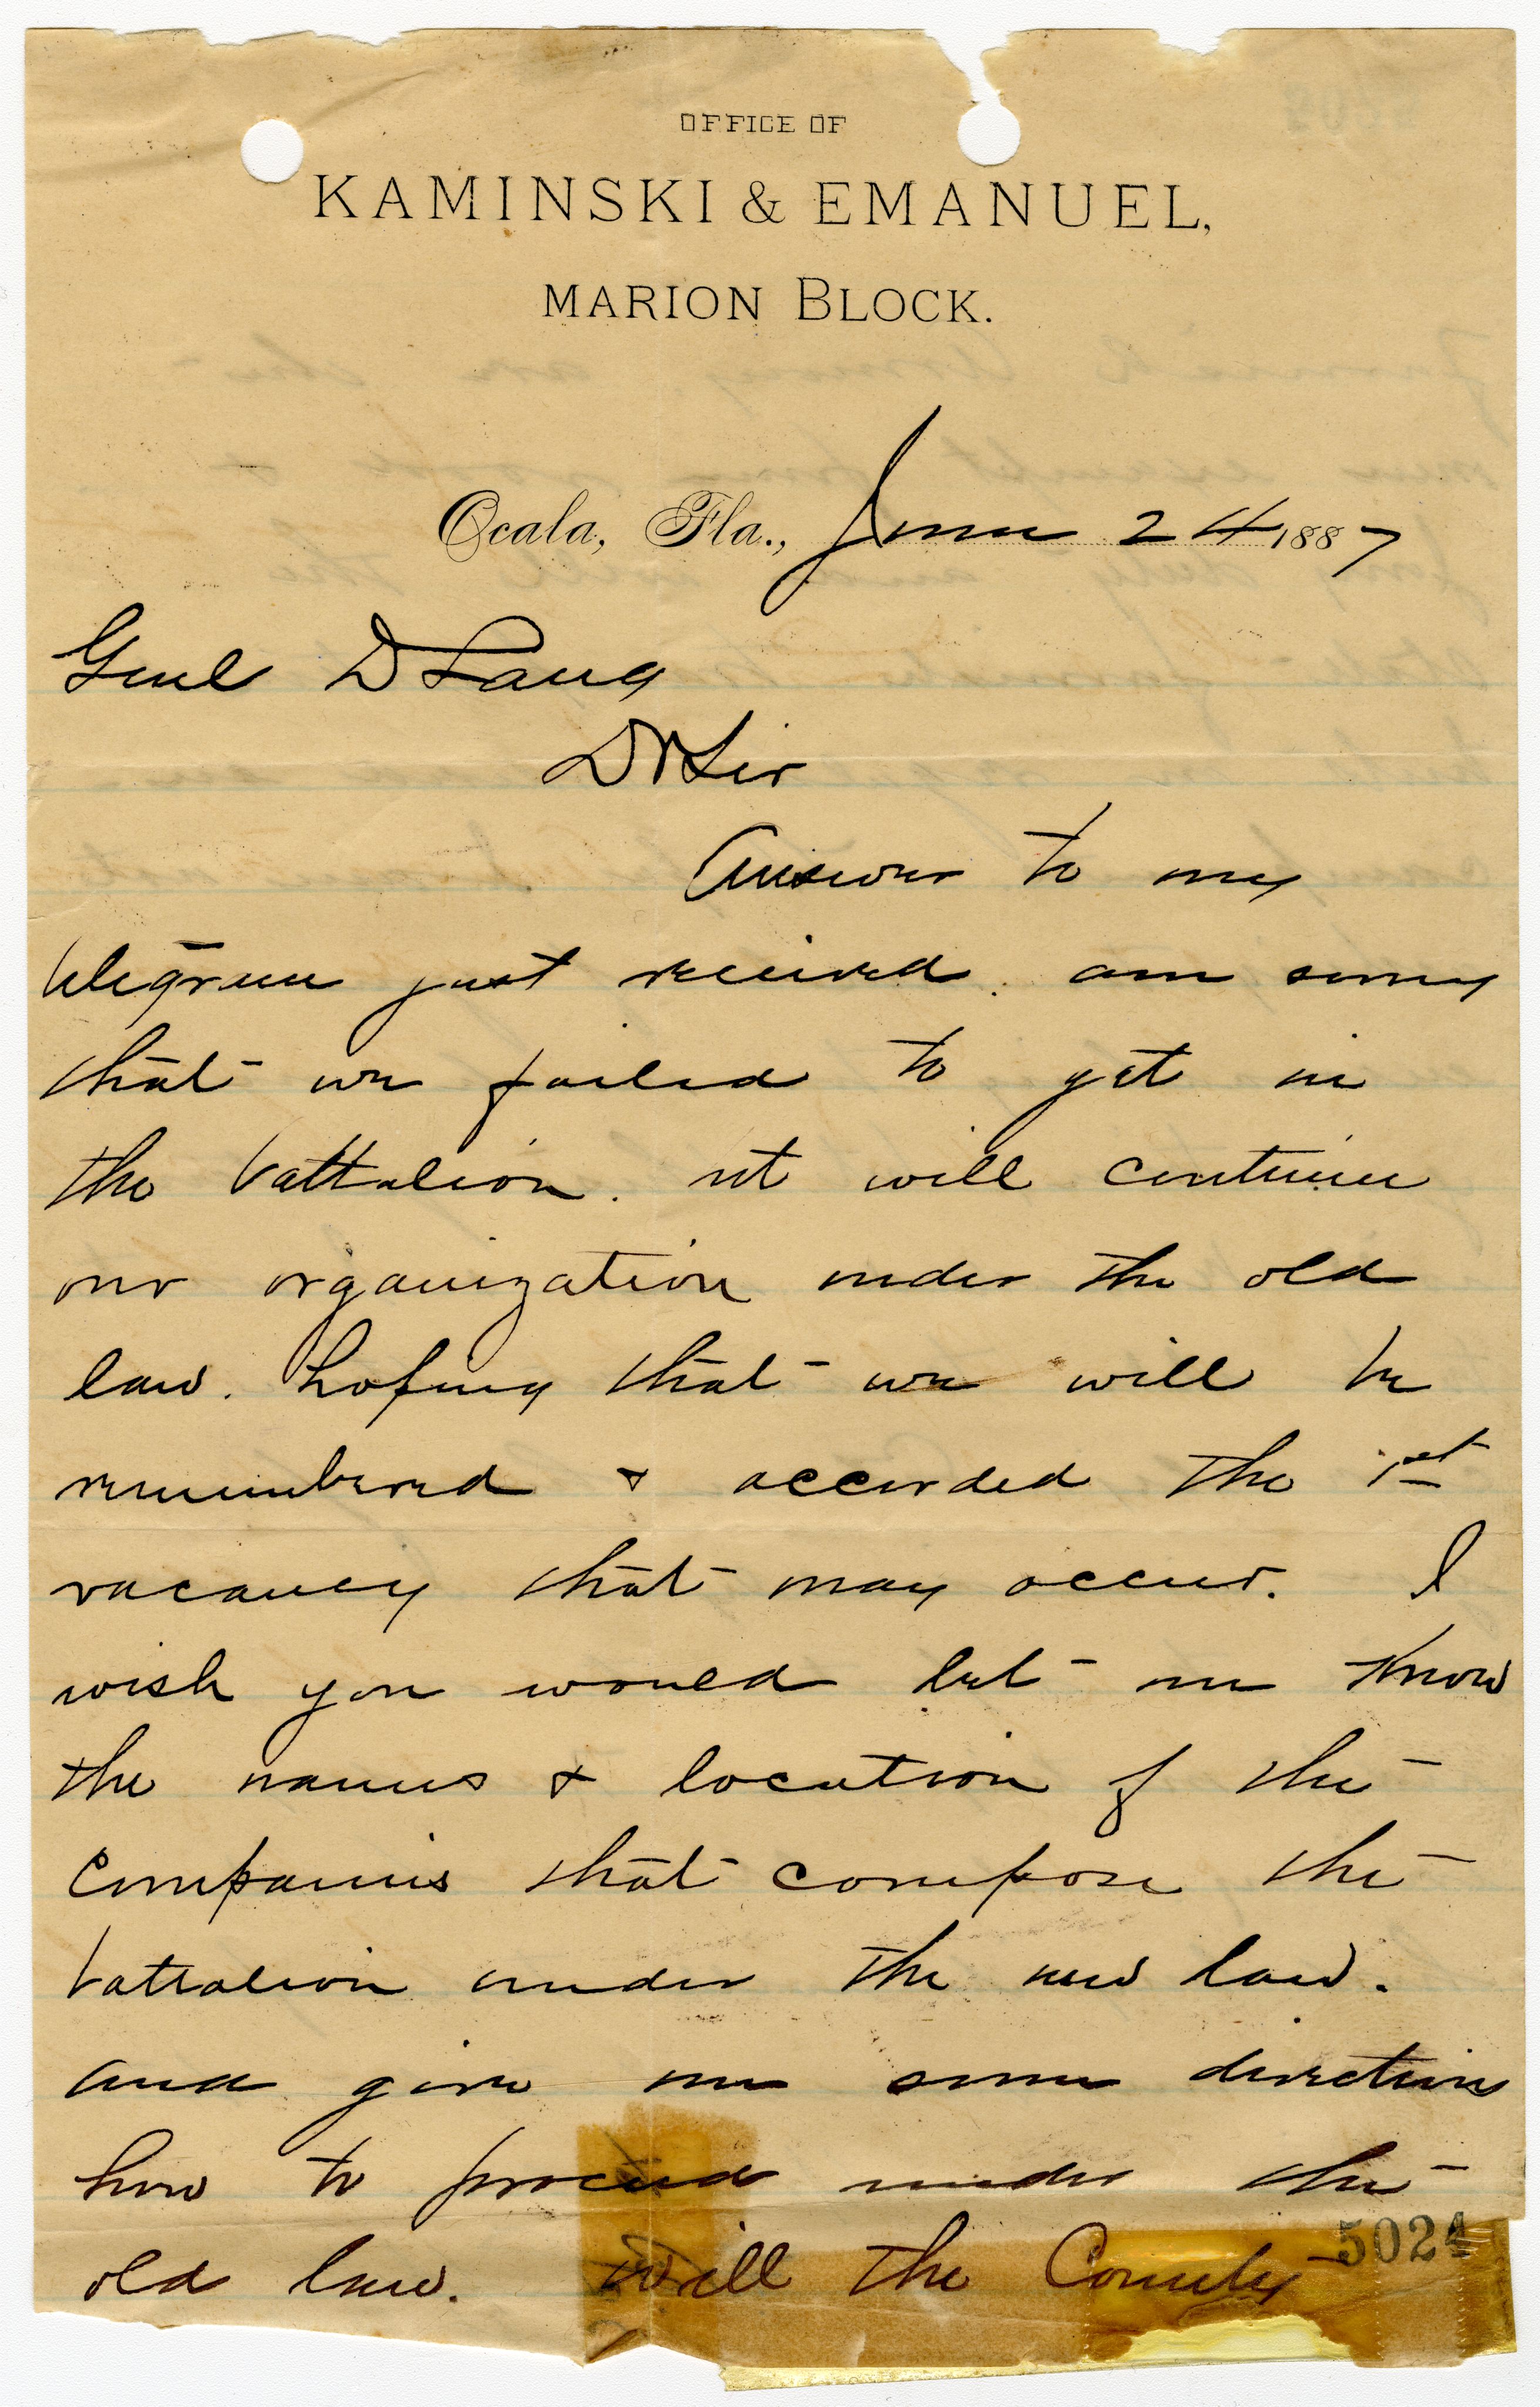 OFFICE OF
KAMINSKI & EMANUEL,
MARION BLOCK.
Ocala, Fla., June 24 1887
Genl D Lang
Dr Sir
Answer to my
telegram just received. am sorry
that we failed to get in
the battalion. will continue
our organization under the old
law. hoping that we will be
remembered & accorded the 1st
vacancy that may occur. I
wish you would let me know
the names & location of the
Companies that compose the
battalion under the new law.
and give me some directions
how to proceed under the
old law. Will the County
5024